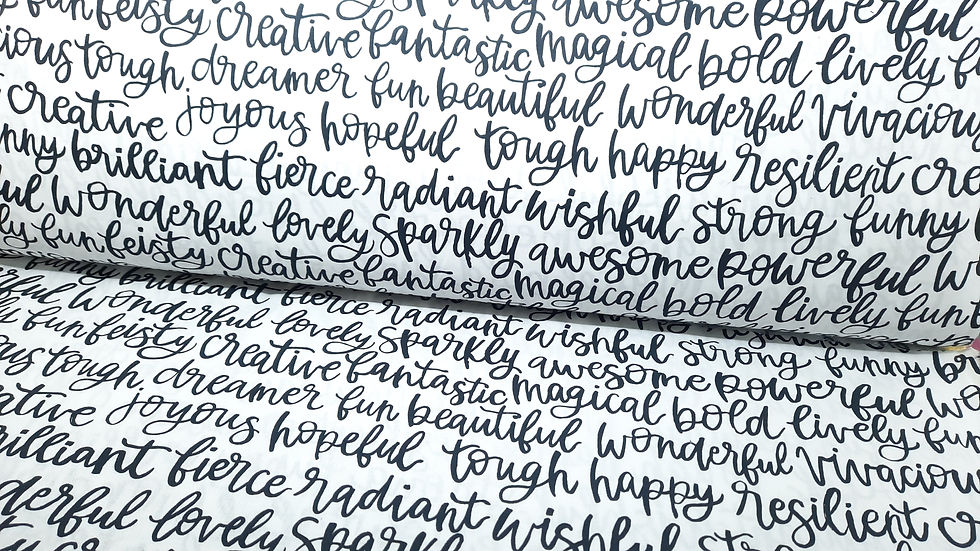 fun feisty creative sparkly awesome powerful
tough dreamer fantastic magical bold lively
creative joyous fun beautiful wonderful vivacious
brilliant hopeful tough happy resilient
wonderful fierce radiant wishful strong funny
fun feisty lovely sparkly awesome powerful
creative fantastic magical bold lively
funny brilliant fierce radiant wishful strong funny
wonderful lovely sparkly awesome powerful
fun feisty creative fantastic magical bold lively
tough dreamer fun beautiful wonderful vivacious
joyous hopeful tough happy resilient
brilliant fierce radiant wishful
lovely sparkly